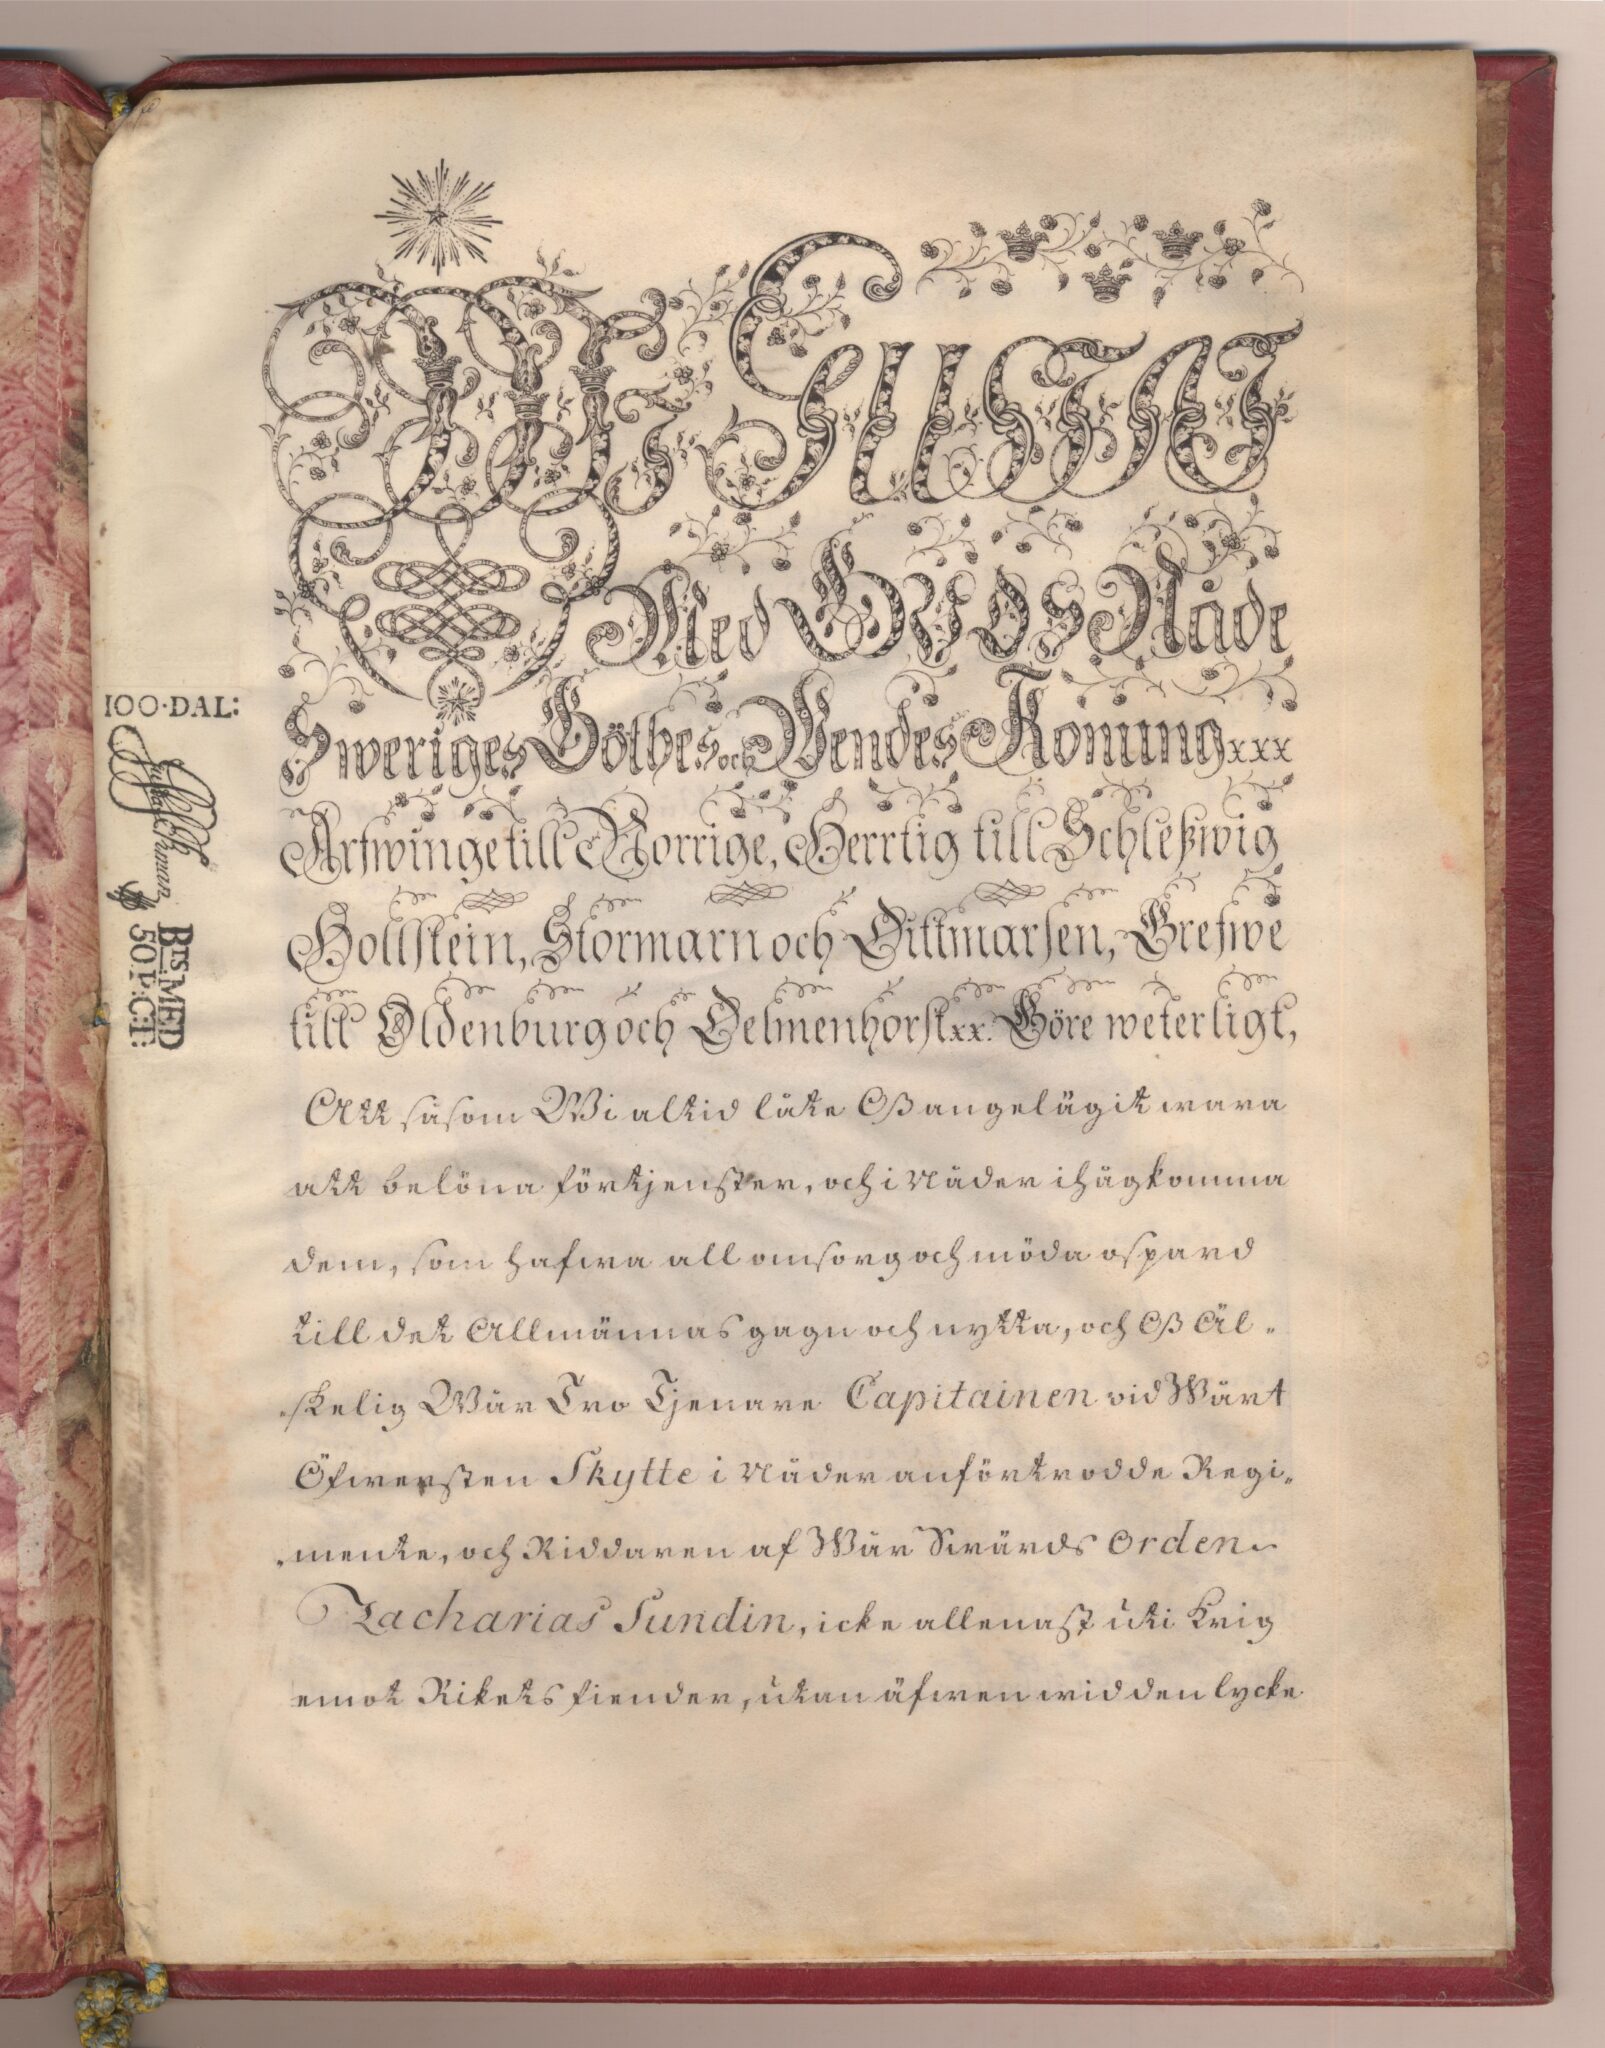 Wi Gustaf
Med Guds Nåde
Sweriges Göthes och Wendes Konung xxx
Arfwinge till Norrige, Herrtig till Schleßwig
Hollstein, Stormarn och Dittmarsen, Grefwe
till Oldenburg och Delmenhorst xx. Göre weterligt,
Att såsom Wi altid låte Oß angelägit wara
att belöna förtjenster, och i Nåder ihågkomma
dem, som hafwa all omsorg och möda ospard
till det Allmännas gagn och nytta, och Oß Äl-
skelig Wår Tro Tjenare Capitainen vid Wårt
Öfwersten Skytte i Nåder anförtrodde Regi-
mente, och Riddaren af Wår Swärds Orden
Zacharias Sundin, icke allenast uti Krig
emot Rikets fiender, utan äfwen wid den lycke
100·DAL:
BTS MED
50 P:C:T: